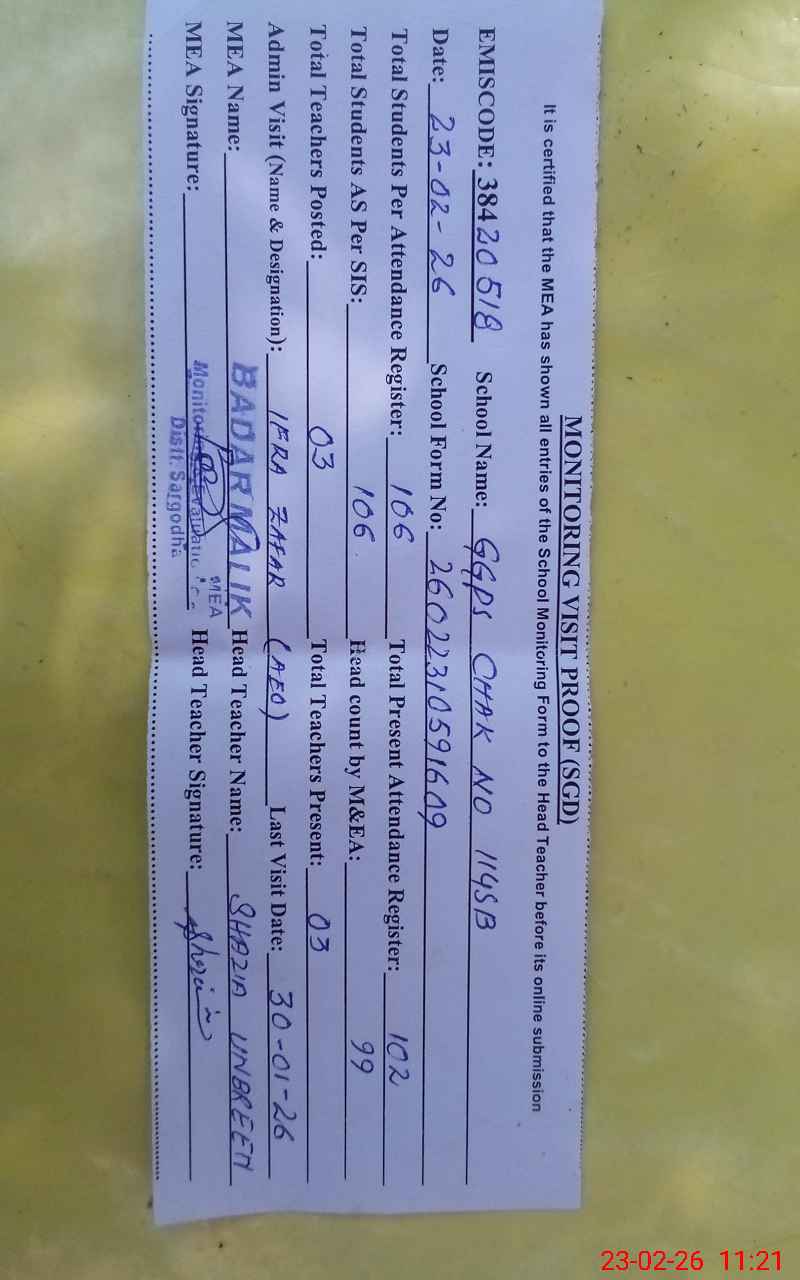 MONITORING VISIT PROOF (SGD)
It is certified that the MEA has shown all entries of the School Monitoring Form to the Head Teacher before its online submission
EMISCODE: 38420518 School Name: GGPS CHAK NO 114SB
Date: 23-02-26 School Form No: 26022310591609
Total Students Per Attendance Register: 106 Total Present Attendance Register: 102
Total Students AS Per SIS: 106 Head count by M&EA: 99
Total Teachers Posted: 03 Total Teachers Present: 03
Admin Visit (Name & Designation): IFRA ZAFAR (AEO) Last Visit Date: 30-01-26
MEA Name: BADAR MALIK MEA Head Teacher Name: SHAZIA UNBREEN
MEA Signature: Distt. Sargodha Head Teacher Signature: Shazia
23-02-26 11:21